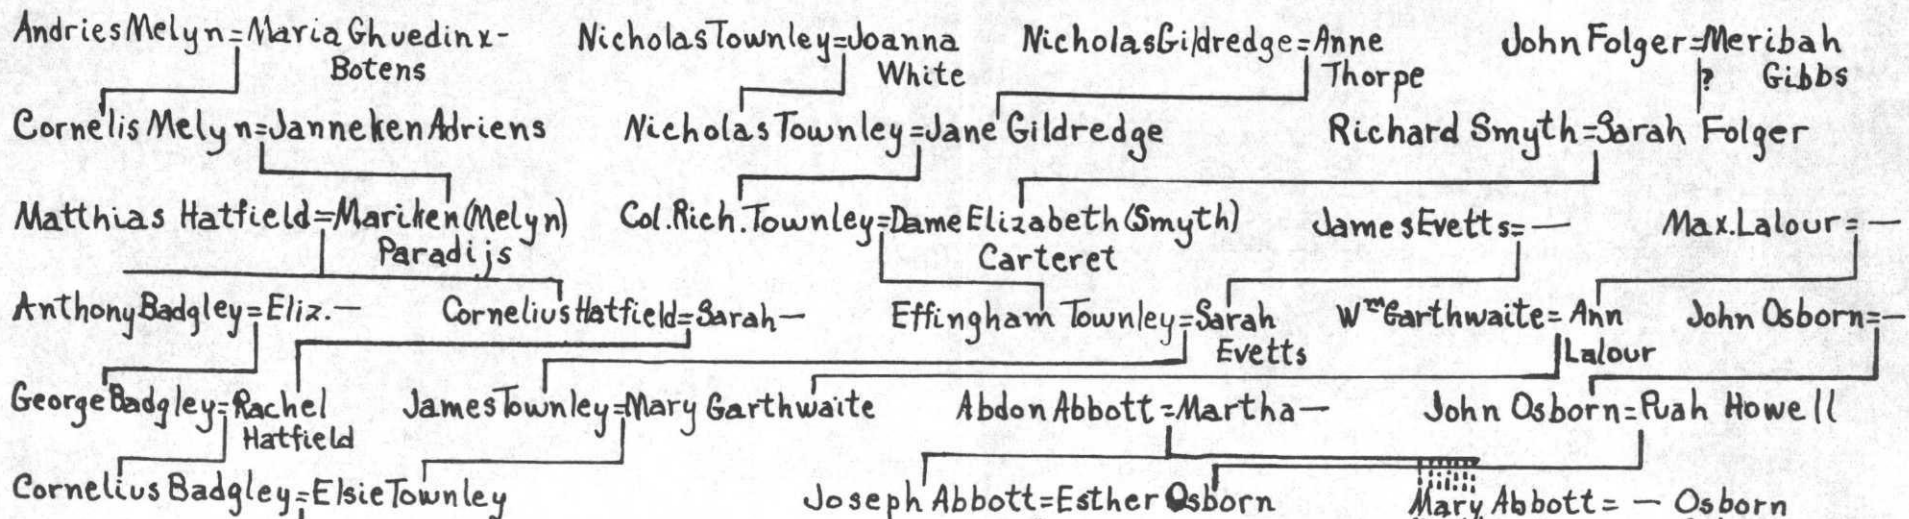 Andries Melyn=Maria Ghuedinx- Nicholas Townley=Joanna Nicholas Gildredge=Anne John Folger=Meribah
Botens White Thorpe ? Gibbs
Cornelis Melyn=Janneken Adriens Nicholas Townley=Jane Gildredge Richard Smyth=Sarah Folger
Matthias Hatfield=Mariken (Melyn) Col. Rich. Townley=Dame Elizabeth (Smyth) James Evetts=— Max. Lalour=—
Paradijs Carteret
Anthony Badgley=Eliz.— Cornelius Hatfield=Sarah— Effingham Townley=Sarah Wm Garthwaite=Ann John Osborn=—
Evetts Lalour
George Badgley=Rachel James Townley=Mary Garthwaite Abdon Abbott=Martha— John Osborn=Puah Howell
Hatfield
Cornelius Badgley=Elsie Townley Joseph Abbott=Esther Osborn Mary Abbott=— Osborn